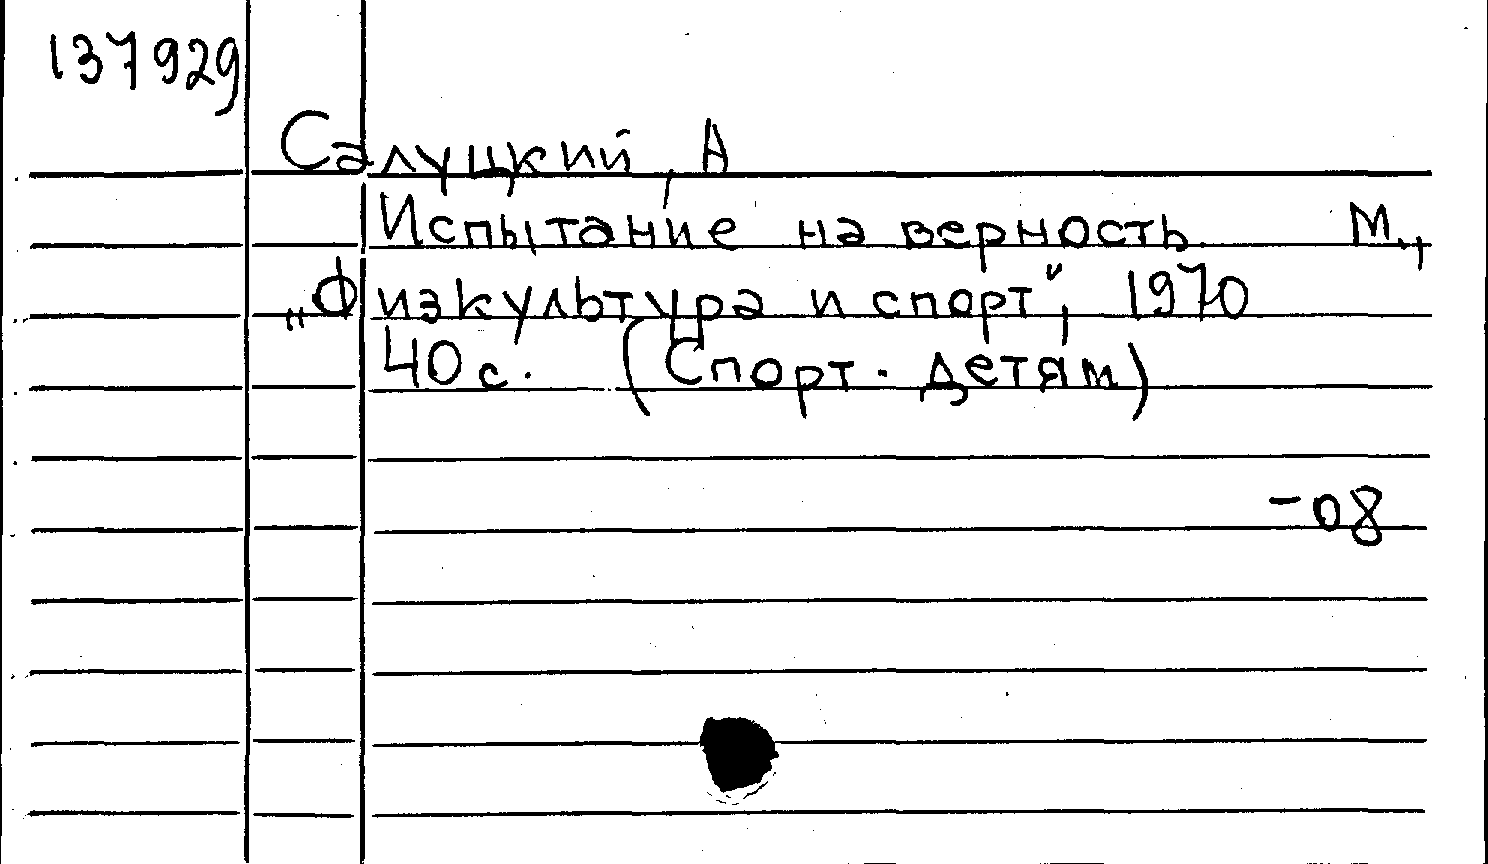 137929
Салуцкий, А
Испытание на верность. М.,
„Физкультура и спорт", 1970
40 с. (Спорт. детям)
-08